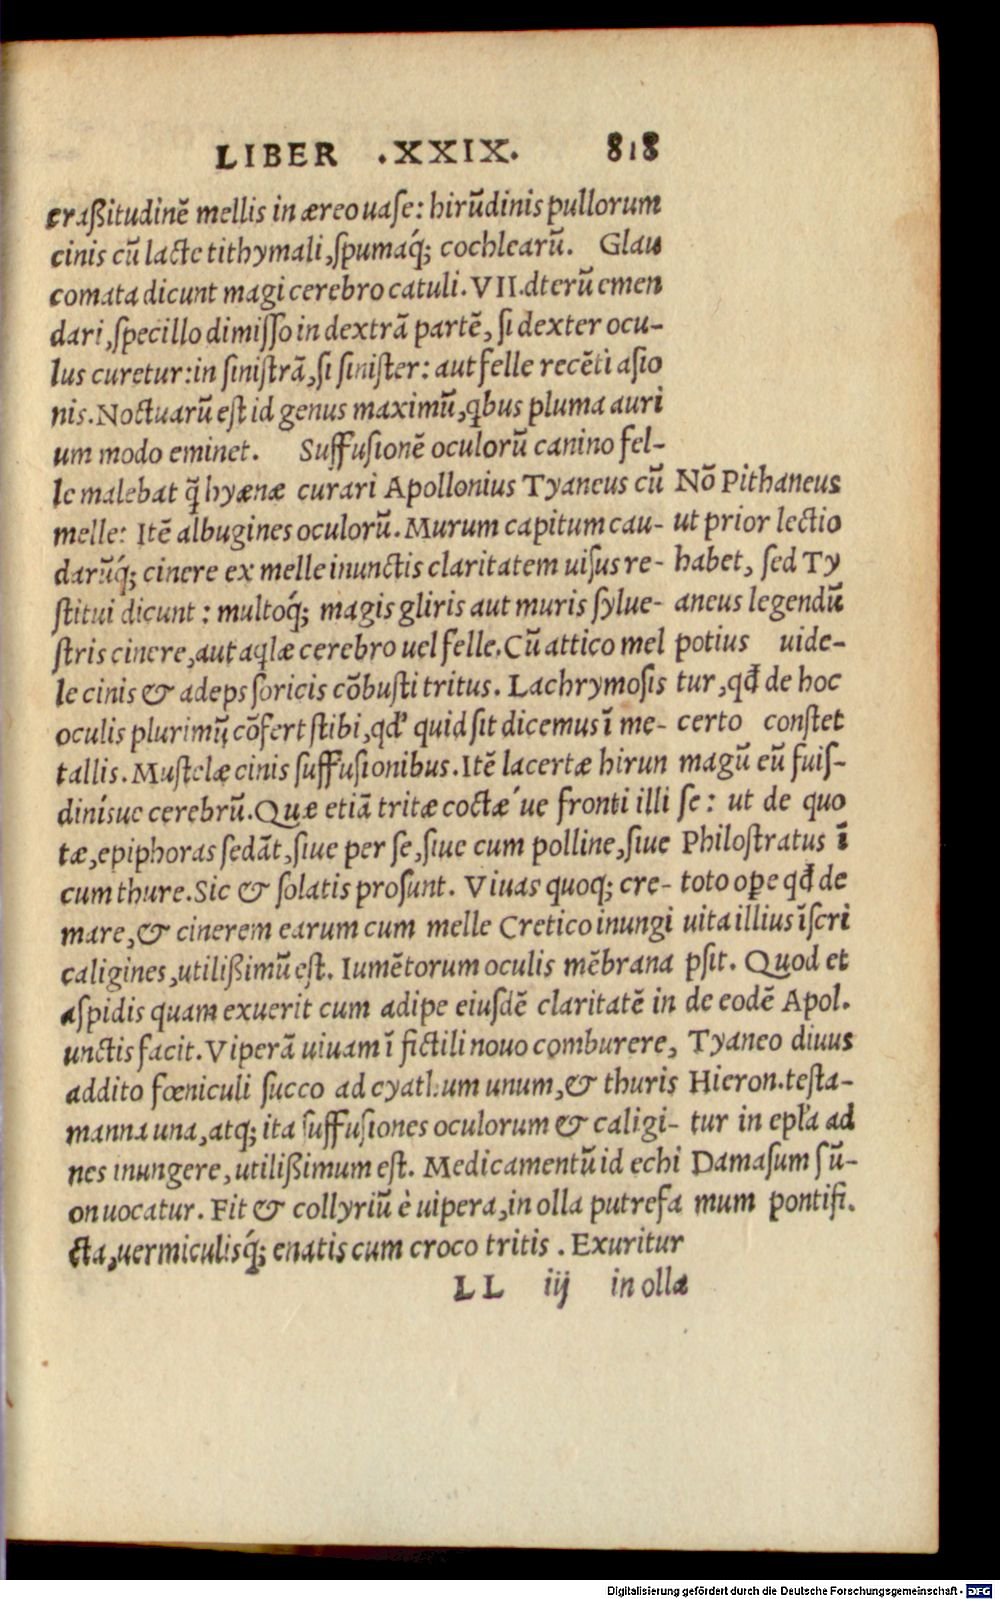 LIBER .XXIX. 818
craßitudinē mellis in æreo uase: hirūdinis pullorum
cinis cū lacte tithymali, spumaq́; cochlearū. Glau
comata dicunt magi cerebro catuli. VII. dierū emen
dari, specillo dimisso in dextrā partē, si dexter ocu-
lus curetur: in sinistrā, si sinister: aut felle recēti asio
nis. Noctuarū est id genus maximū, qbus pluma auri
um modo eminet. Suffusionē oculorū canino fel-
le malebat q̃ hyænæ curari Apollonius Tyaneus cū
melle: Itē albugines oculorū. Murum capitum cau-
darūq́; cinere ex melle inunctis claritatem uisus re-
stitui dicunt: multoq́; magis gliris aut muris sylue-
stris cinere, aut aqlæ cerebro uel felle. Cū attico mel
le cinis & adeps soricis cōbusti tritus. Lachrymosis
oculis plurimū cōfert stibi, qd' quid sit dicemus ī me-
tallis. Mustelæ cinis suffusionibus. Itē lacertæ hirun
dinísue cerebrū. Quæ etiā tritæ coctǽ ue fronti illi
tæ, epiphoras sedāt, siue per se, siue cum polline, siue
cum thure. Sic & solatis prosunt. Viuas quoq; cre-
mare, & cinerem earum cum melle Cretico inungi
caligines, utilißimū est. Iumētorum oculis mēbrana
aspidis quam exuerit cum adipe eiusdē claritatē in
unctis facit. Viperā uiuam ī fictili nouo comburere,
addito fœniculi succo ad cyathum unum, & thuris
manna una, atq; ita suffusiones oculorum & caligi-
nes inungere, utilißimum est. Medicamentū id echi
on uocatur. Fit & collyriū è uipera, in olla putrefa
cta, uermiculisq́; enatis cum croco tritis. Exuritur
LL iij in olla
Nō Pithaneus
ut prior lectio
habet, sed Ty
aneus legendū
potius uide-
tur, qđ de hoc
certo constet
magū eū fuis-
se: ut de quo
Philostratus ī
toto ope qđ de
uita illius īscri
psit. Quod et
de eodē Apol.
Tyaneo diuus
Hieron. testa-
tur in epl'a ad
Damasum sū-
mum pontifi.
Digitalisierung gefördert durch die Deutsche Forschungsgemeinschaft - DFG